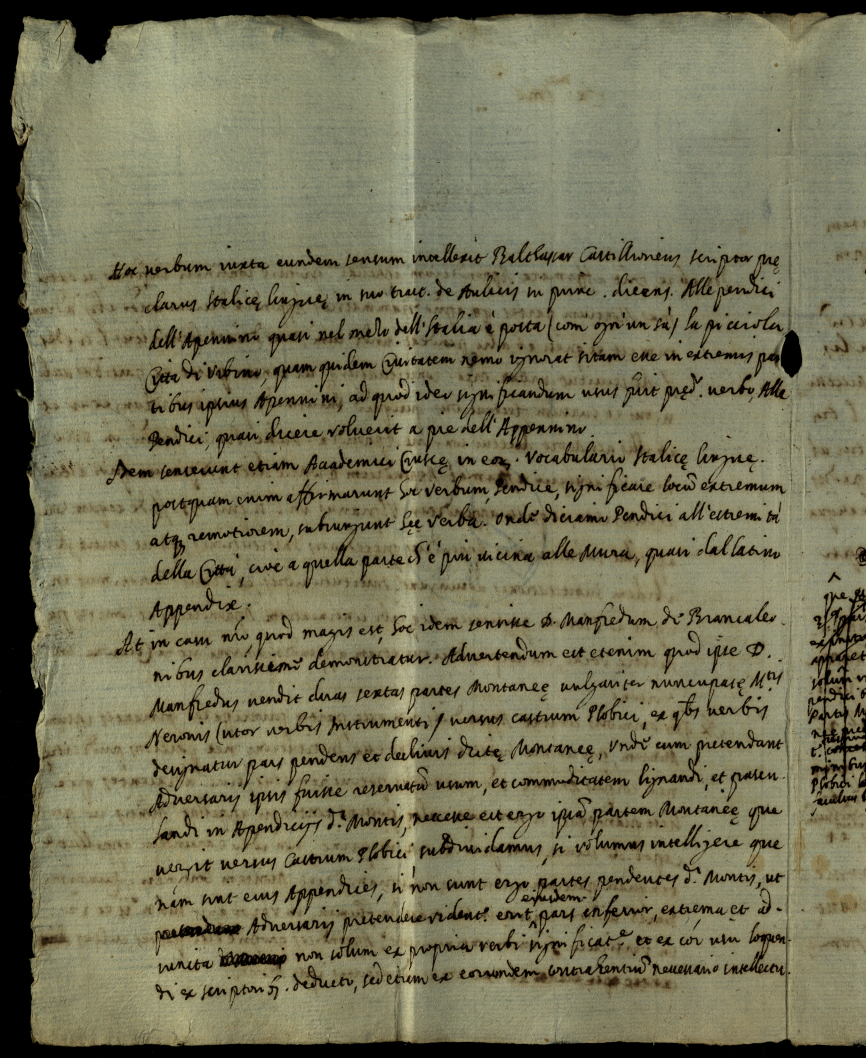 Hoc verbum iuxta eundem sensum intellexit Balthassar Castillioneus scriptor prę
clarus Italicę linguę in suo trait. de Aulicis in princ. dicens. Alle pendici
dell'Apennino quasi nel mezo dell'Italia è posta (com'ogn'un sà) la picciola
Città di Urbino, quam quidem Civitatem nemo ignorat sitam esse in extremis par
tibus ipsius Apennini, ad quod idem significandum usus fuit pręd. verbo, Alle
Pendici, quasi dicere voluerit a piè dell'Appennino.
Idem senserunt etiam Academici Cruscę in eor. Vocabulario Italicę linguę.
postquam enim affirmarunt hoc verbum Pendice, significare locū extremum
atq. remotiorem, subiungunt hęc verba. Onde diciamo Pendici all'estremità
della Città, cioè a quella parte ch'è più vicina alle Mura, quasi dal latino
Appendix.
At in casu nrō quod magis est hoc idem sensisse D. Manfredum de Brancaleo
nibus clarissimè demonstratur. Advertendum est etenim quod ipse D.
Manfredus vendit duas sextas partes Montaneę vulgariter nuncupatę Mtis
Neronis (utor verbis Instrumenti) versus castrum Plobici, ex qbs verbis
designatur pars pendens et declivis dictę Montaneę, Unde cum pretendant
Adversarij ipsis fuisse reservatū usum, et commoditatem lignandi, et pascu-
landi in Apendicijs d. Montis, necesse est ergo ipsā partem Montaneę que
vergit versus Castrum Plobici subdividamus, si volumus intelligere que
nam sint eius Appendices, si non sunt ergo partes pendentes d. Montis, ut
Adversarij pretendere vident. erit eiusdem pars inferior, extrema et ad-
non solum ex propria verbi significat.e et ex cōi usu loquen-
di ex scriptorib. deducto, sed etiam ex eorundem contrahentiū necessario intellectu.